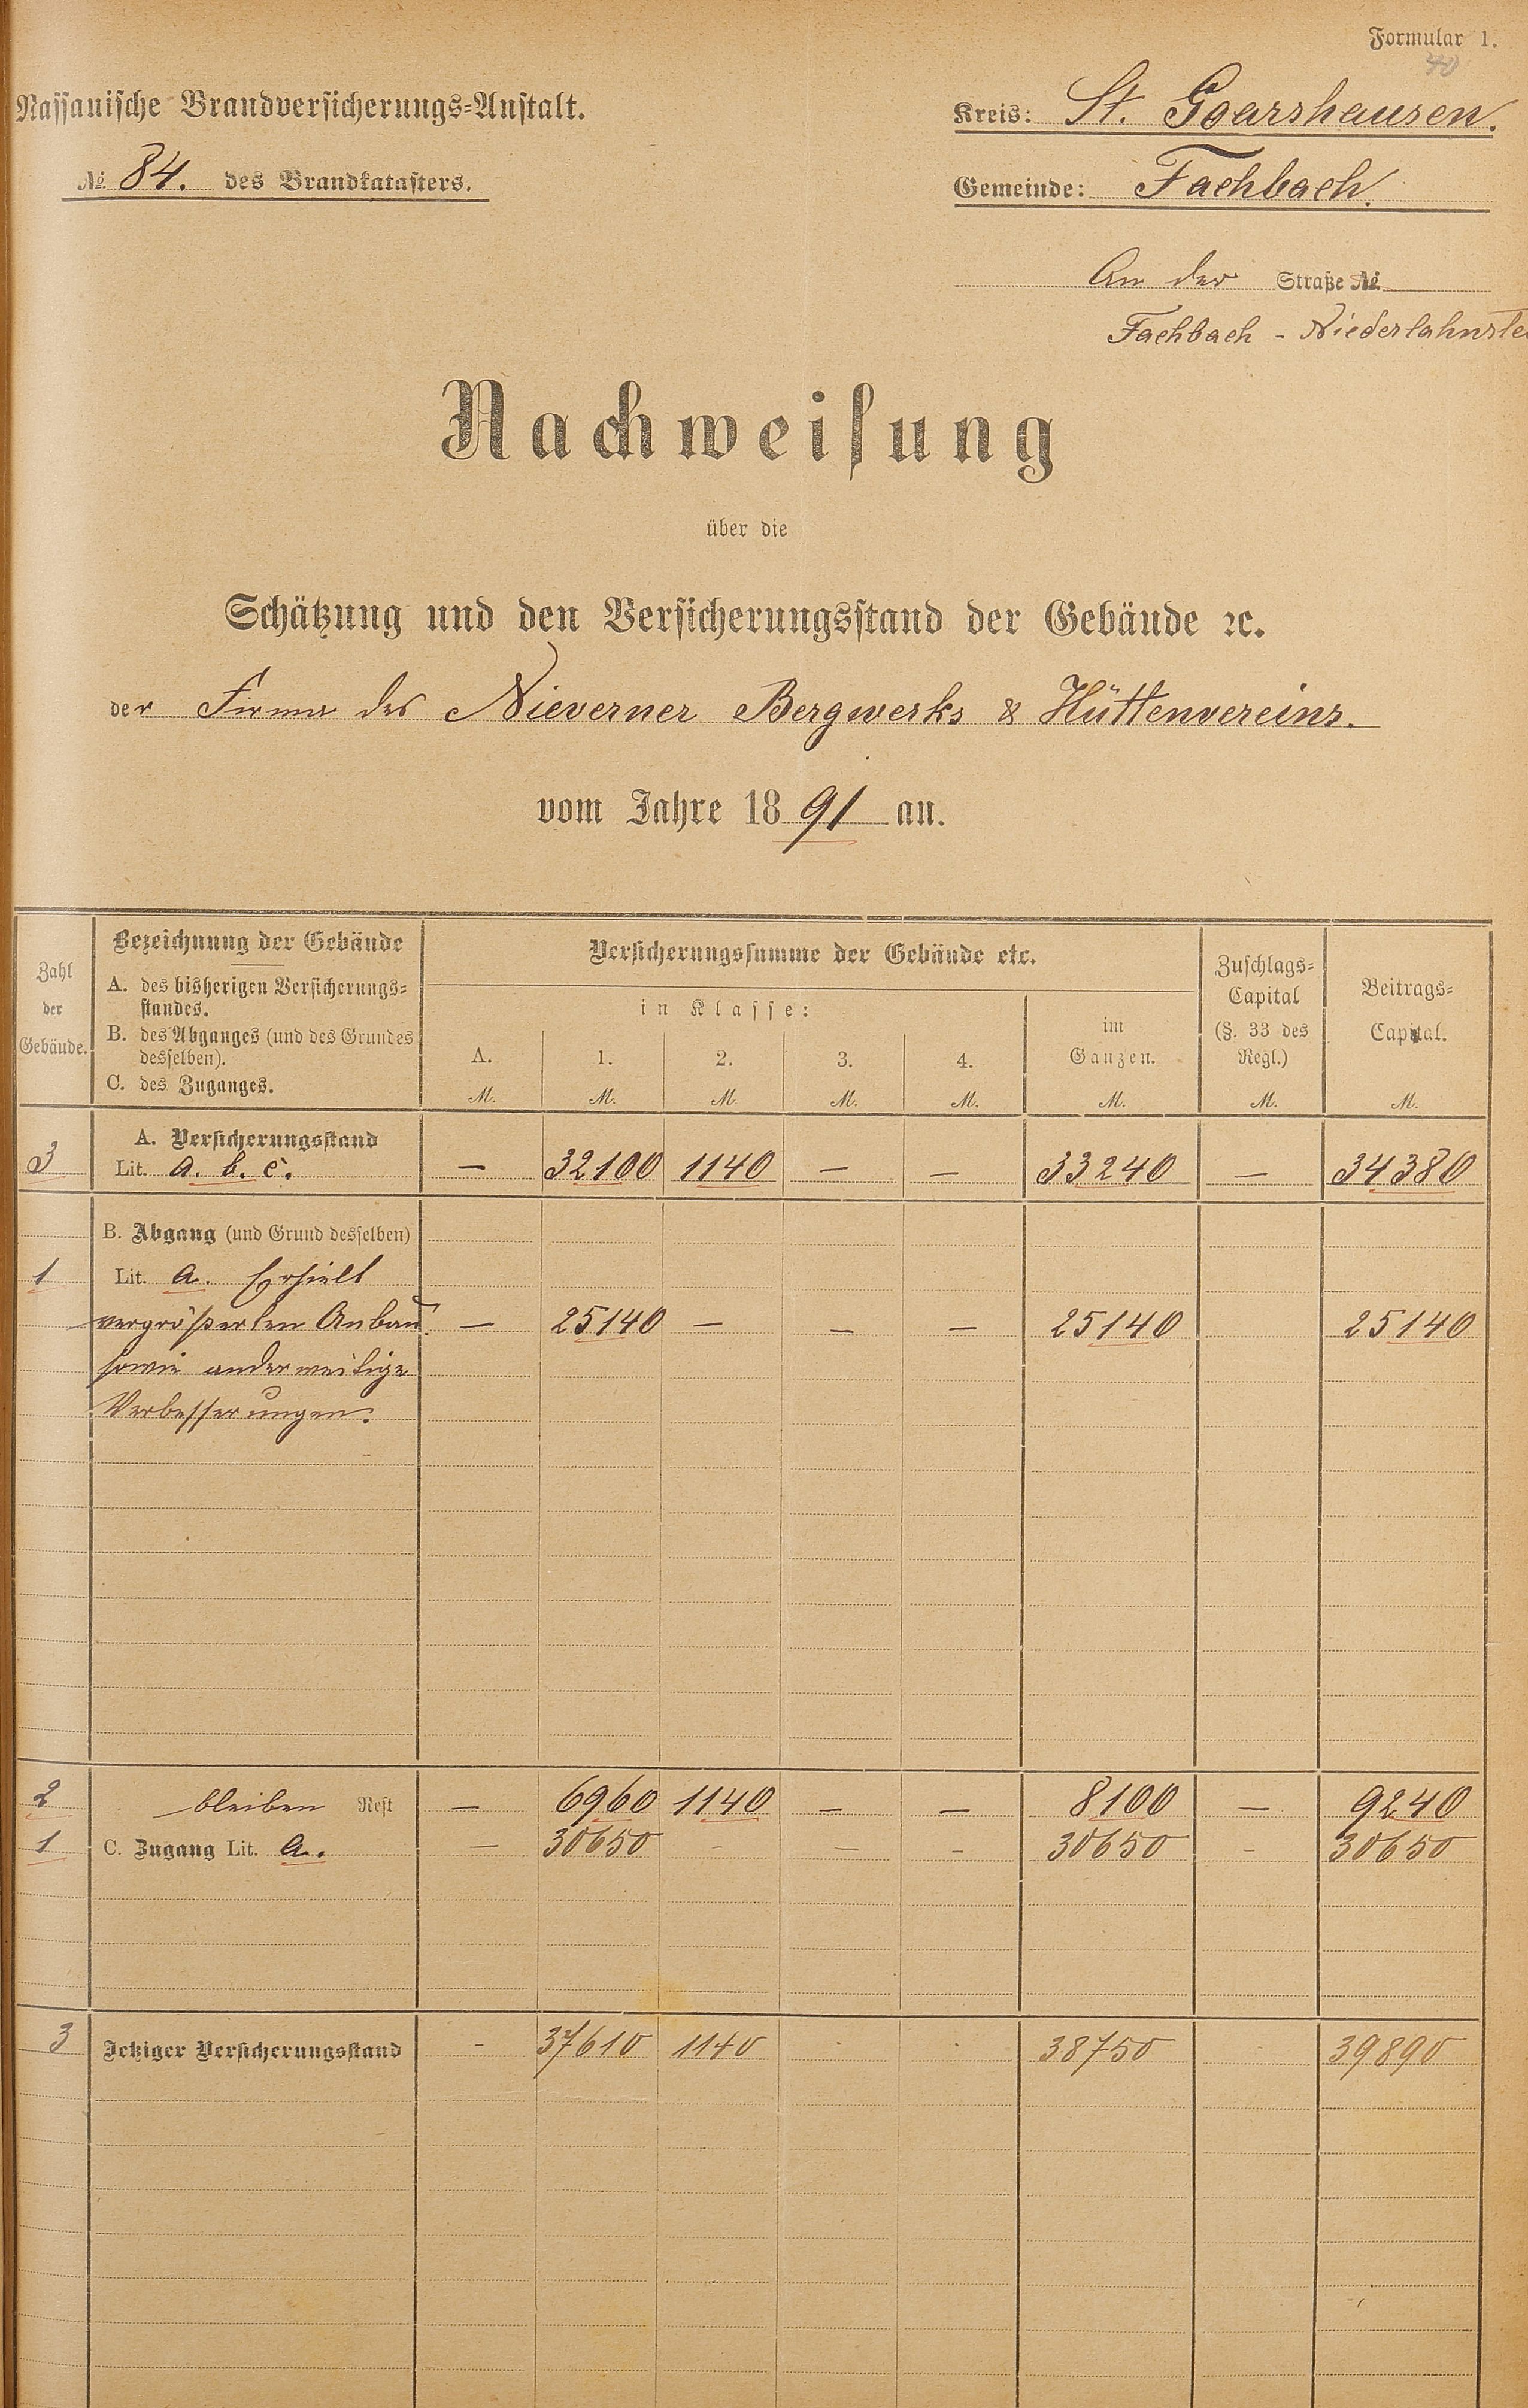 Formular 1.
40
Nassauische Brandversicherungs-Anstalt.
Kreis: St. Goarshausen.
№ 84. des Brandkatasters.
Gemeinde: Fachbach.
An der Straße №
Fachbach - Niederlahnste
Nachweisung
über die
Schätzung und den Versicherungsstand der Gebäude ꝛc.
der Firma des Nieverner Bergwerks & Hüttenvereins.
vom Jahre 1891 an.
Zahl der Gebäude.
Bezeichnung der Gebäude
A. des bisherigen Versicherungs-
standes.
B. des Abganges (und des Grundes
desselben).
C. des Zuganges.
Versicherungssumme der Gebäude etc.
in Klasse:
A. 1. 2. 3. 4.
im Ganzen.
Zuschlags-
Capital
(§. 33 des
Regl.)
Beitrags-
Capital.
M. M. M. M. M. M. M. M.
A. Versicherungsstand
3 Lit. a. b. c. — 32100 1140 — — 33240 — 34380
B. Abgang (und Grund desselben)
1 Lit. a. Erhielt
vergrößerten Anbau — 25140 — — — 25140 25140
sowie anderweitige
Verbesserungen.
2 bleiben Rest — 6960 1140 — — 8100 — 9240
1 C. Zugang Lit. a. — 30650 - — - 30650 - 30650
3 Jetziger Versicherungsstand - 37610 1140 . . 38750 - 39890